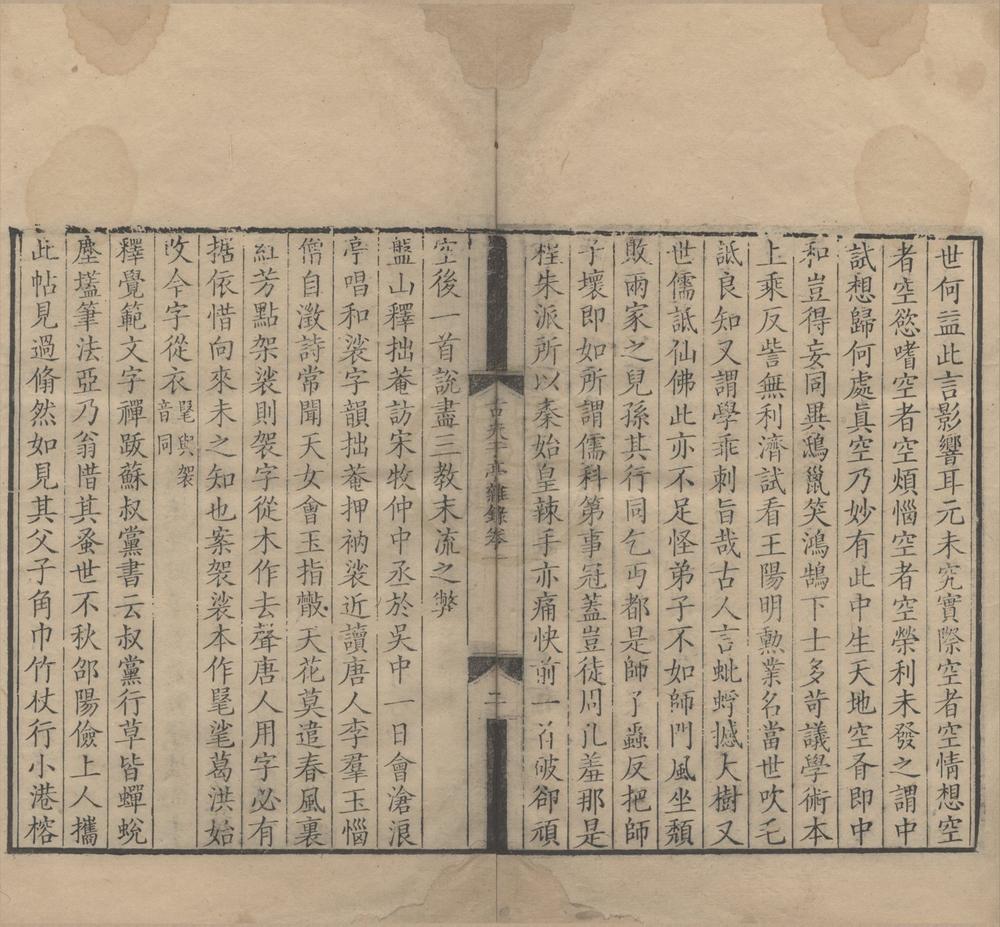 世何益此言影響耳元未究實際空者空情想空
者空慾嗜空者空煩惱空者空榮利未發之謂中
試想歸何處眞空乃妙有此中生天地空吝即中
和豈得妄同異鴟鼠笑鴻鵠下士多苛議學術本
上乘反訾無利濟試看王陽明勲業名當世吹毛
詆良知又謂學乖刺旨哉古人言蚍蜉撼大樹又
世儒詆仙佛此亦不足怪弟子不如師門風坐頽
敗兩家之兒孫其行同乞丐都是師子蟲反把師
子壞即如所謂儒科第事冠蓋豈徒周孔羞那是
程朱派所以秦始皇辣手亦痛快前一首破卻頑
空後一首說盡三教末流之弊
盤山釋拙菴訪宋牧仲中丞於吳中一日會滄浪
亭唱和裟字韻拙菴押衲裟近讀唐人李羣玉惱
僧自澂詩常聞天女會玉指散天花莫遣春風裏
紅芳點架裟則袈字從木作去聲唐人用字必有
据依惜向來未之知也案袈裟本作毠㲚葛洪始
改今字從衣毠與袈音同
釋覺範文字禪跋蘇叔黨書云叔黨行草皆蟬蛻
塵壒筆法亞乃翁惜其蚤世不秋邵陽儉上人攜
此帖見過翛然如見其父子角巾竹杖行小港榕
古夫于亭雜錄卷一
二